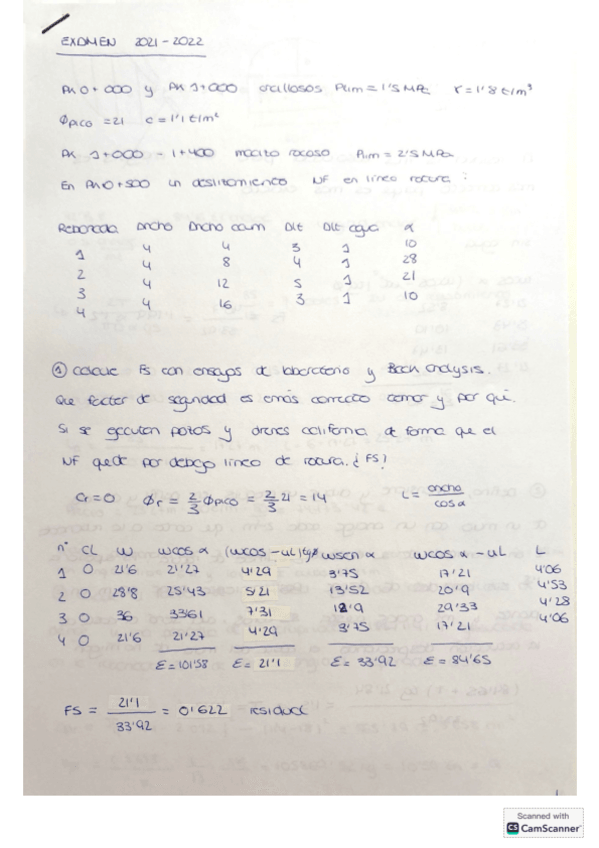 EXAMEN 2021-2022
PK 0+000 y PK 1+000 arcillosos Plim = 1'5 MPa r = 1'8 t/m³
Φpico = 21 c = 1'1 t/m²
PK 1+000 - 1+400 macizo rocoso Plim = 2'5 MPa
En PK 0+500 un deslizamiento NF en línea rotura:
Rebanada Ancho Ancho acum Alt Alt agua α
1 4 4 3 1 10
2 4 8 4 1 28
3 4 12 5 1 21
4 4 16 3 1 10
① Calcule Fs con ensayos de laboratorio y Back analysis.
Que factor de seguridad es más correcto tomar y por qué.
Si se ejecutan pozos y drenes california de forma que el
NF quede por debajo línea de rotura. ¿FS?
Cr = 0 Φr = 2/3 Φpico = 2/3 21 = 14 L = ancho/cosα
nº CL W Wcos α (Wcos - uL)tgφ Wsen α Wcos α - uL L
1 0 21'6 21'27 4'29 3'75 17'21 4'06
2 0 28'8 25'43 5'21 13'52 20'9 4'53
3 0 36 33'61 7'31 12'9 29'33 4'28
4 0 21'6 21'27 4'29 3'75 17'21 4'06
Σ = 101'58 Σ = 21'1 Σ = 33'92 Σ = 84'65
FS = 21'1/33'92 = 0'622 residual
Scanned with
CS CamScanner